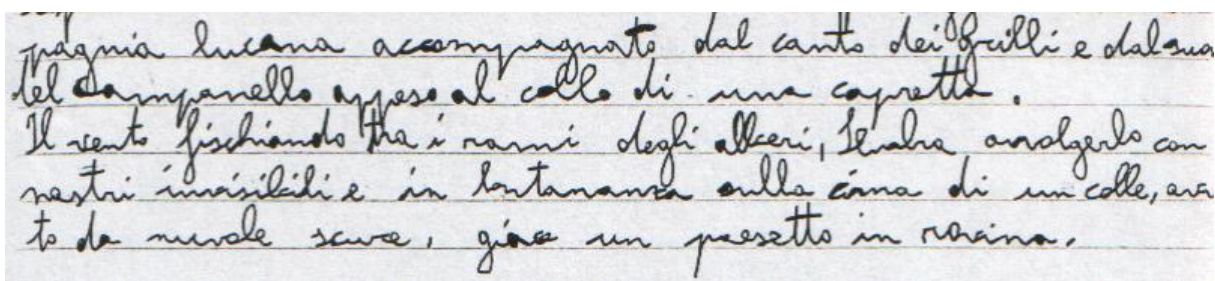 pagnia lucana accompagnato dal canto dei grilli e dal suo
del campanello appeso al collo di una capretta.
Il vento fischiando tra i rami degli alberi, sembra avvolgerlo con
nastri invisibili e in lontananza sulla cima di un colle, avv
to da nuvole scure, giace un paesetto in rovina.